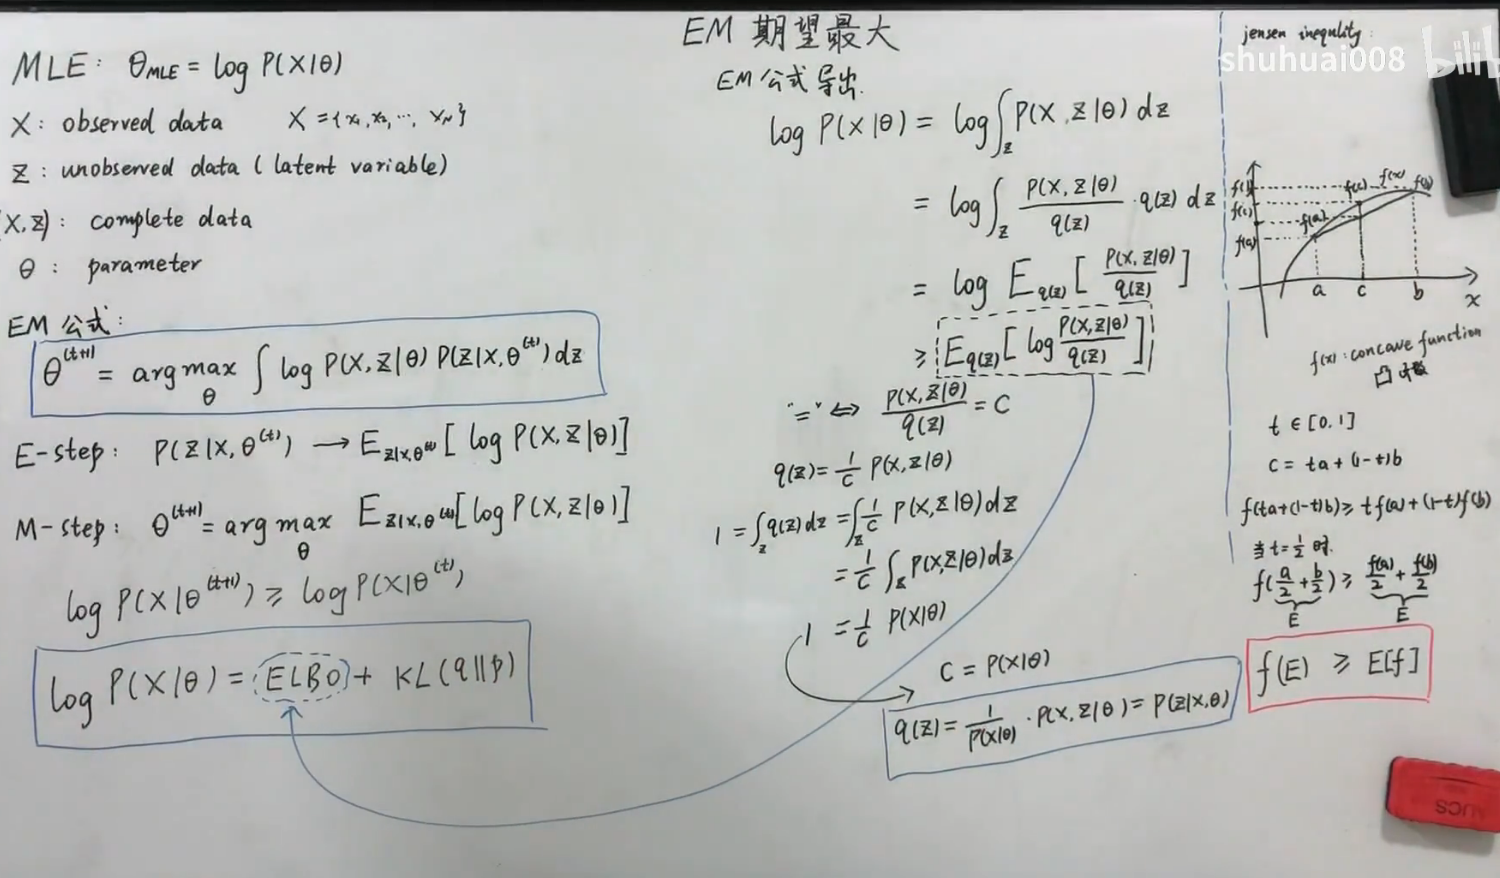 EM 期望最大
MLE: θ_MLE = log P(X|θ)
X: observed data X = {x₁, x₂, ..., x_N}
Z: unobserved data (latent variable)
(X, Z): complete data
θ: parameter
EM 公式:
θ^(t+1) = arg max_θ ∫ log P(X, Z|θ) P(Z|X, θ^(t)) dz
E-step: P(Z|X, θ^(t)) → E_{Z|X, θ^(t)} [log P(X, Z|θ)]
M-step: θ^(t+1) = arg max_θ E_{Z|X, θ^(t)} [log P(X, Z|θ)]
log P(X|θ^(t+1)) ≥ log P(X|θ^(t))
log P(X|θ) = ELBO + KL(q||p)
EM 公式导出.
log P(X|θ) = log ∫_Z P(X, Z|θ) dz
= log ∫_Z P(X, Z|θ)/q(Z) · q(Z) dz
= log E_{q(Z)} [P(X, Z|θ)/q(Z)]
≥ E_{q(Z)} [log P(X, Z|θ)/q(Z)]
"=" ⇔ P(X, Z|θ)/q(Z) = C
q(Z) = 1/C P(X, Z|θ)
1 = ∫_Z q(Z) dz = ∫_Z 1/C P(X, Z|θ) dz
= 1/C ∫_Z P(X, Z|θ) dz
1 = 1/C P(X|θ)
C = P(X|θ)
q(Z) = 1/P(X|θ) · P(X, Z|θ) = P(Z|X, θ)
jensen inequlity:
shuhuai008 bilibili
f(c) f(x) f(b)
f(c) f(a)
f(a)
a c b x
f(x): concave function
凸函数
t ∈ [0, 1]
c = ta + (1-t)b
f(ta + (1-t)b) ≥ tf(a) + (1-t)f(b)
当 t = 1/2 时.
f(a/2 + b/2) ≥ f(a)/2 + f(b)/2
E E
f(E) ≥ E[f]